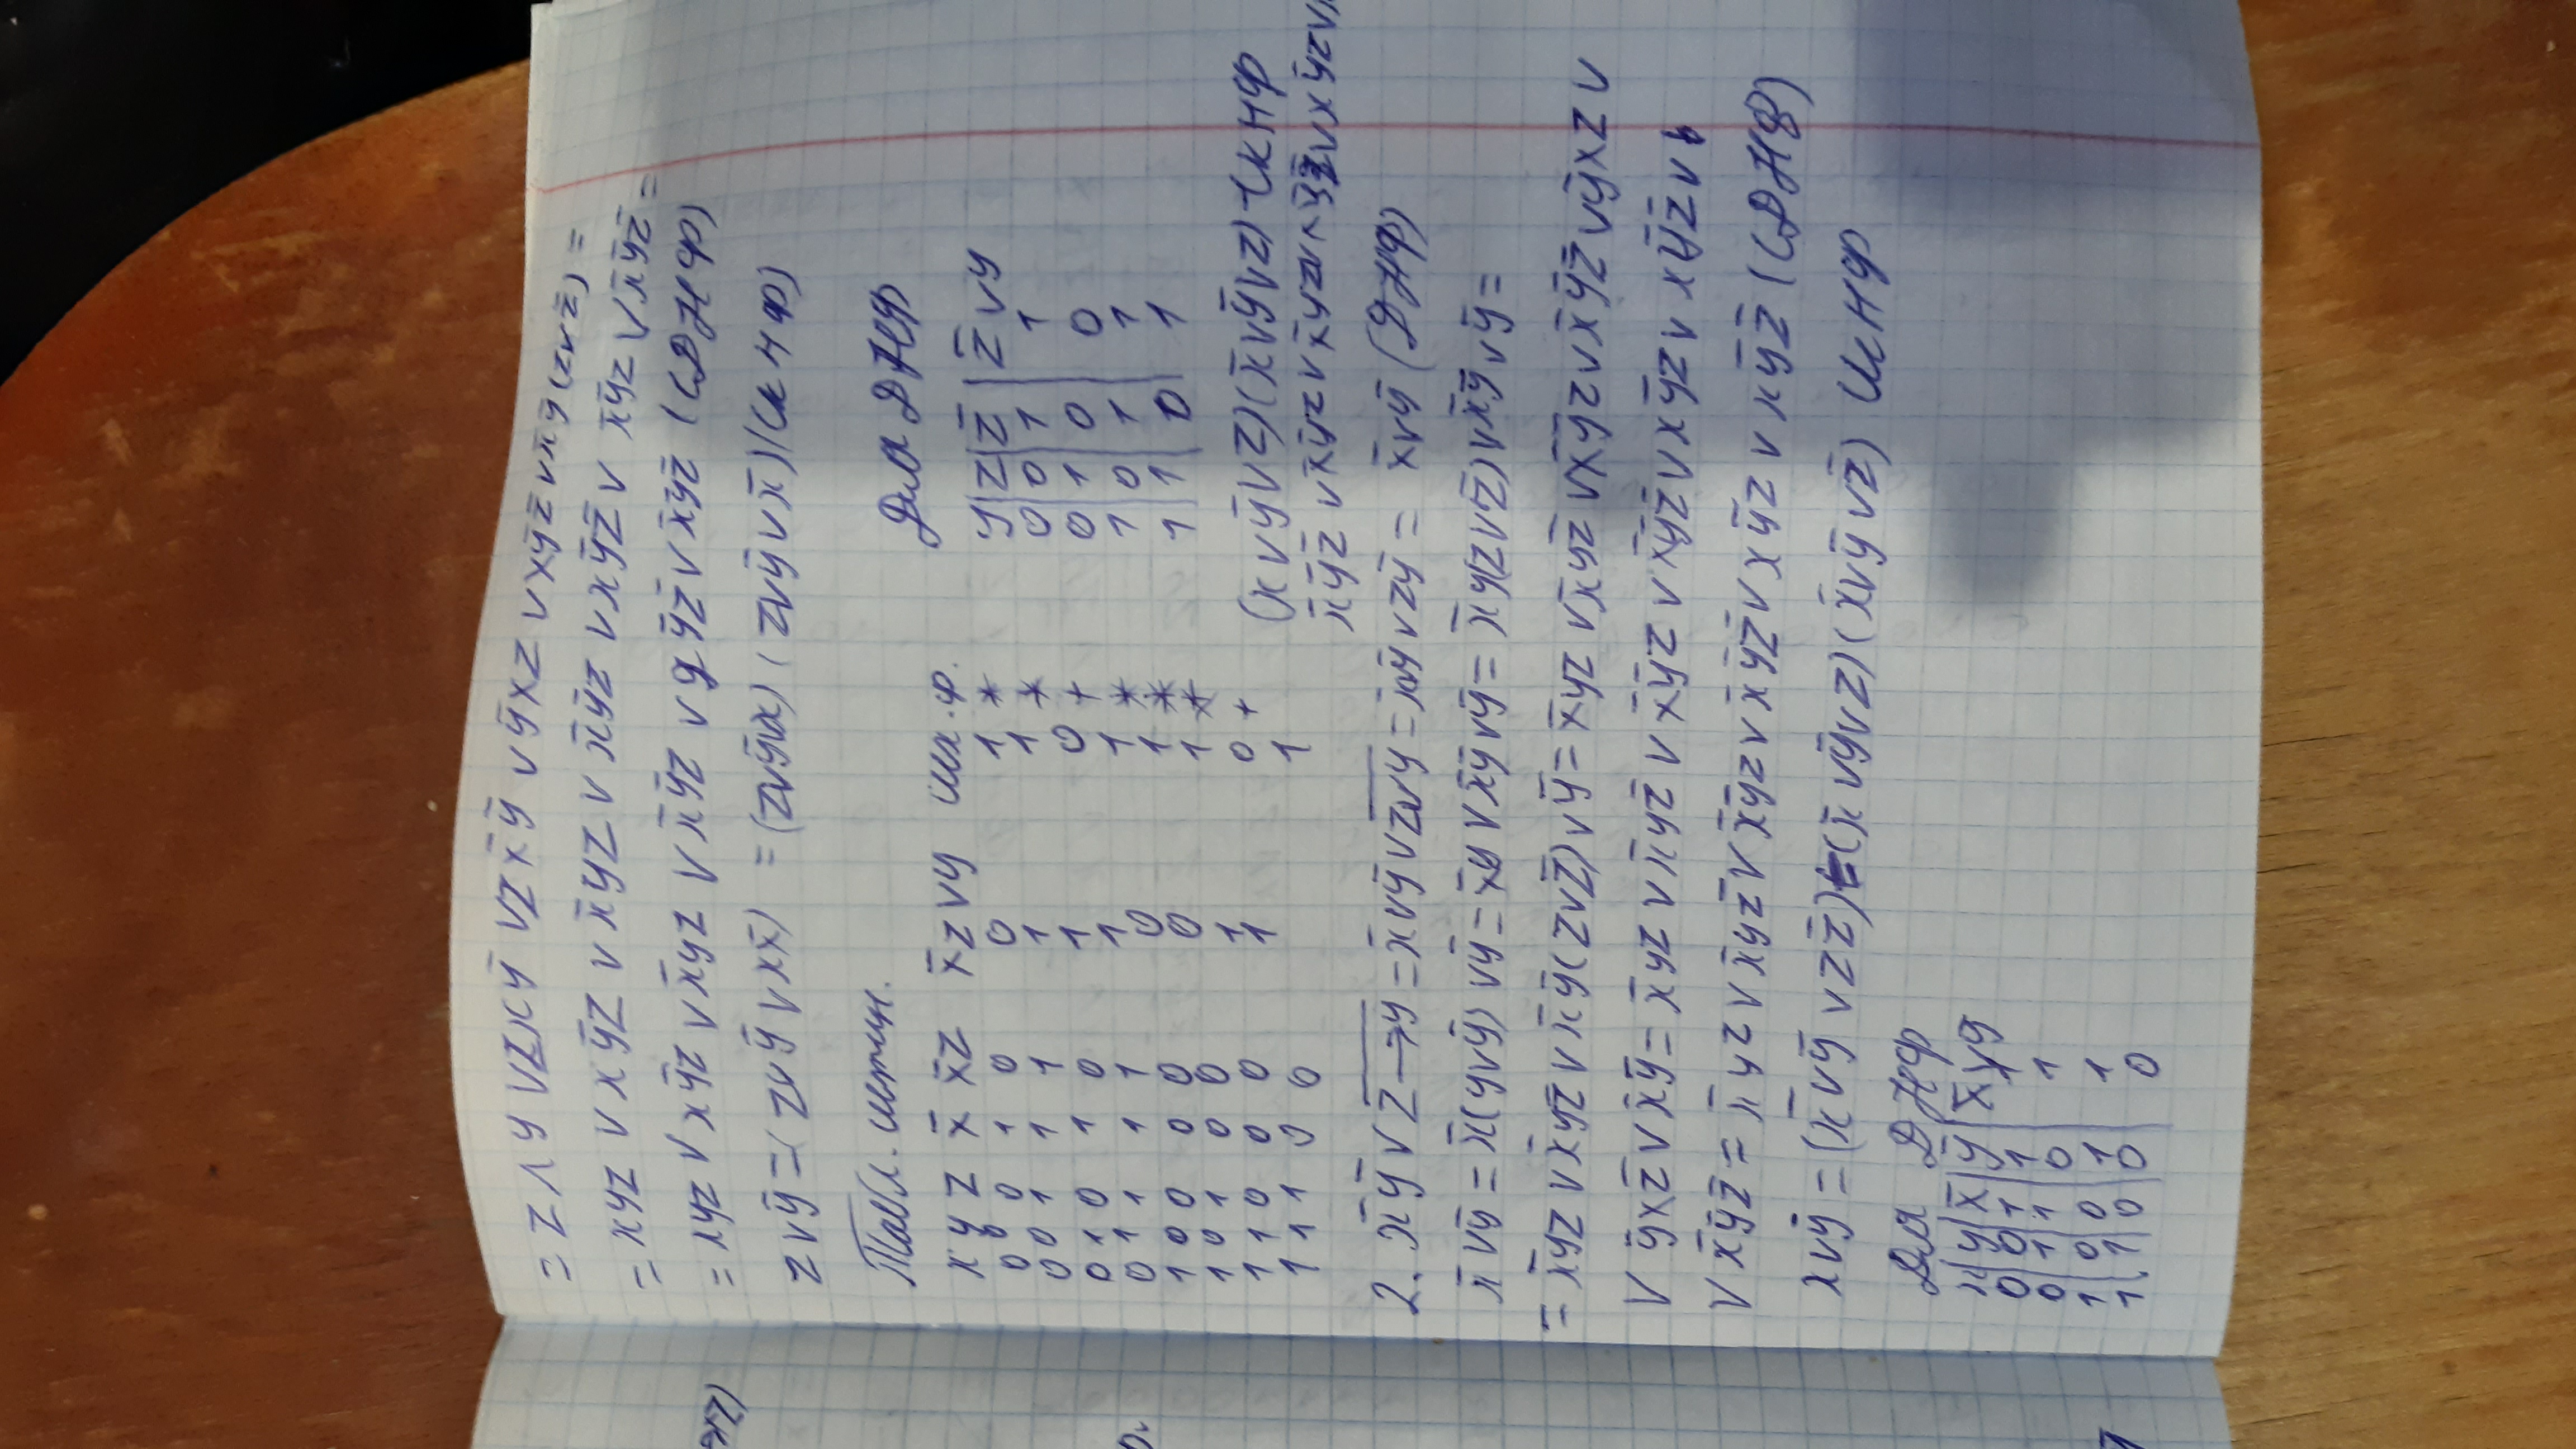 = z ∧ y ∨ zxȳ ∨ zx̄ȳ ∨ ȳxz ∨ xȳz̄ ∨ x̄ȳ(z∨z̄) =
= xyz ∨ xȳz ∨ x̄yz ∨ x̄ȳz ∨ xȳz̄ ∨ x̄ȳz ∨ x̄ȳz̄ =
= xyz ∨ xȳz ∨ x̄yz ∨ x̄ȳz ∨ xȳz̄ ∨ x̄ȳz̄ (СДНФ)
z∨ȳ = (z∨ȳ∨xx̄) = (z∨ȳ∨x)(z∨ȳ∨x̄)(СКНФ)
Табл. истин.
x y z x̄ x̄z x̄z∨y исх.ф.
0 0 0 1 0 0 1 *
0 0 1 1 1 1 1 *
0 1 0 1 0 1 0 +
0 1 1 1 1 1 1 *
1 0 0 0 0 0 1 *
1 0 1 0 0 0 1 *
1 1 0 0 0 1 0 +
1 1 1 0 0 1 1
Для ДНФ
y|z|z̄|z̄∨y
0 0 1 1
0 1 0 0
1 0 1 1
1 1 0 1
(x∨ȳ∨z)(x̄∨ȳ∨z) - СКНФ
x̄ȳz̄ ∨ x̄ȳz ∨ x̄yz ∨ xȳz̄ ∨ xȳz ∨
2. x̄ȳ ∨ \overline{z→y} = x̄∨ȳ∨\overline{z̄∨y} = x̄∨ȳ∨zȳ = x̄∨ȳ (ДНФ)
x̄∨ȳ = x̄(y∨ȳ)∨ȳ = x̄y∨x̄ȳ∨ȳ = x̄y(z∨z̄)∨x̄ȳ∨ȳ =
= x̄yz∨x̄yz̄∨x̄ȳ(z∨z̄)∨ȳ = x̄yz∨x̄yz̄∨x̄ȳz∨x̄ȳz̄∨ȳxz∨
∨ ȳxz̄∨x̄ȳ = x̄yz∨x̄yz̄∨x̄ȳz∨x̄ȳz̄∨xȳz∨xȳz̄∨
∨ x̄ȳz̄ = x̄yz∨x̄yz̄∨x̄ȳz∨x̄ȳz̄∨xȳz∨xȳz̄ (СДНФ)
x∨ȳ = (x̄∨ȳ∨zz̄) = (x̄∨ȳ∨z)(x̄∨ȳ∨z̄) СКНФ
Для ДНФ
x|y|x̄|ȳ|x̄∨ȳ
0 0 1 1 1
0 1 1 0 1
1 0 0 1 1
1 1 0 0 0